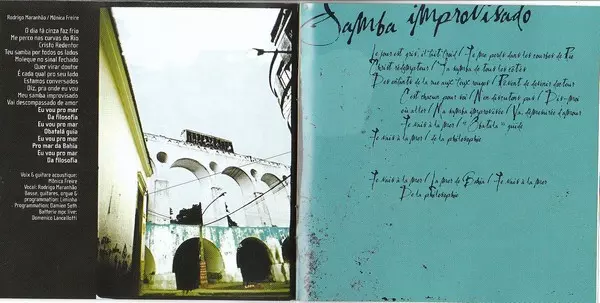 Rodrigo Maranhão / Mônica Freire
O dia tá cinza faz frio
Me perco nas curvas do Rio
Cristo Redentor
Teu samba por todos os lados
Moleque no sinal fechado
Quer virar doutor
É cada qual pro seu lado
Estamos conversados
Diz, pra onde eu vou
Meu samba improvisado
Vai descompassado de amor
Eu vou pro mar
Da filosofia
Eu vou pro mar
Obatalá guia
Eu vou pro mar
Pro mar da Bahia
Eu vou pro mar
Da filosofia
Voix & guitare acoustique:
Mônica Freire
Vocal: Rodrigo Maranhão
Basse, guitares, orgue &
programmation: Leminha
Programmation: Damien Seth
Batterie mpc live:
Domenico Lancellotti
Samba improvisado
Le jour est gris, il fait froid / Je me perds dans les courbes de Rio
Christ rédempteur / Ta samba de tous les côtés
Des enfants de la rue au feu rouge / Rêvent de devenir docteur
C'est chacun pour soi / N'en discutons pas / Dis-moi
où aller / Ma samba improvisée / Va, démesurée d'amour
Je vais à la mer / Obatala guide
Je vais à la mer / de la philosophie
Je vais à la mer / La mer de Bahia / Je vais à la mer
De la philosophie